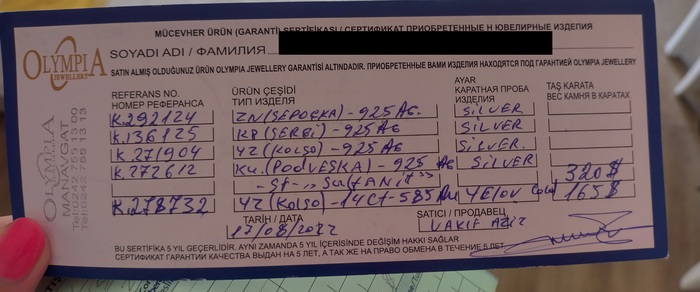 MÜCEVHER ÜRÜN (GARANTİ) SERTİFİKASI / СЕРТИФИКАТ ПРИОБРЕТЕННЫЕ Н ЮВЕЛИРНЫЕ ИЗДЕЛИЯ
OLYMPIA
JEWELLERY
SOYADI ADI / ФАМИЛИЯ
SATIN ALMIŞ OLDUĞUNUZ ÜRÜN OLYMPIA JEWELLERY GARANTİSİ ALTINDADIR. ПРИОБРЕТЕННЫЕ ВАМИ ИЗДЕЛИЯ НАХОДЯТСЯ ПОД ГАРАНТИЕЙ OLYMPIA JEWELLERY
REFERANS NO. ÜRÜN ÇEŞİDİ AYAR TAŞ KARATA
НОМЕР РЕФЕРАНСА ТИП ИЗДЕЛЯ КАРАТНАЯ ПРОБА ИЗДЕЛИЯ ВЕС КАМНЯ В КАРАТАХ
K.292124 ZN (SEPOÇKA) - 925 AG. SİLVER
K.136125 KP (SERGİ) - 925 AG SİLVER
K.271904 YZ (KOLSO) - 925 AG SİLVER.
K.272612 KU. (PODVESKA) - 925 AG SİLVER
- St - ,, SULTANİT" 320$
K.278732 YZ (KOLSO) - 14CT - 585 AU YELOV GOLD 165$
TARİH / DATA SATICI / ПРОДАВЕЦ
17/08/2022 VAKIF AZİZ
BU SERTİFİKA 5 YIL GEÇERLİDİR. AYNI ZAMANDA 5 YIL İÇERİSİNDE DEĞİŞİM HAKKI SAĞLAR
СЕРТИФИКАТ ГАРАНТИЕ КАЧЕСТВА ВЫДАН НА 5 ЛЕТ, А ТАК ЖЕ НА ПРАВО ОБМЕНА В ТЕЧЕНИЕ 5 ЛЕТ.
OLYMPIA
MANAVGAT
Tel:0242 755 13 00
Tel:0242 755 13 13